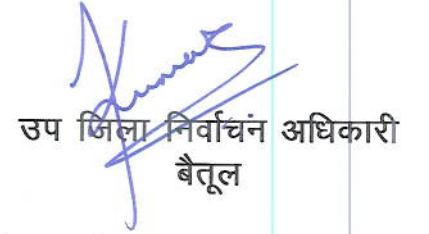 उप जिला निर्वाचन अधिकारी
बैतूल